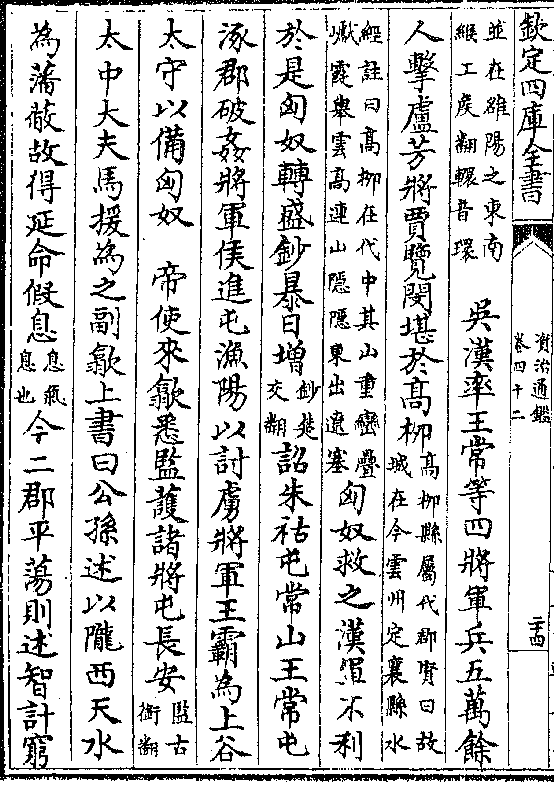 欽定四庫全書
資治通鑑
卷四十二
二十四
並在雒陽之東南
緱工侯翻轘音環
吳漢率王常等四將軍兵五萬餘
人擊盧芳將賈覽閔堪於高柳
高柳縣屬代郡賢曰故
城在今雲州定襄縣水
經註曰高柳在代中其山重巒疊
巘霞舉雲高連山隱隱東出遼塞
匈奴救之漢軍不利
於是匈奴轉盛鈔暴日增
鈔楚
交翻
詔朱祜屯常山王常屯
涿郡破姦將軍侯進屯漁陽以討虜將軍王霸為上谷
太守以備匈奴　帝使來歙悉監護諸將屯長安
監古
銜翻
太中大夫馬援為之副歙上書曰公孫述以隴西天水
為藩蔽故得延命假息
息氣
息也
今二郡平蕩則述智計窮